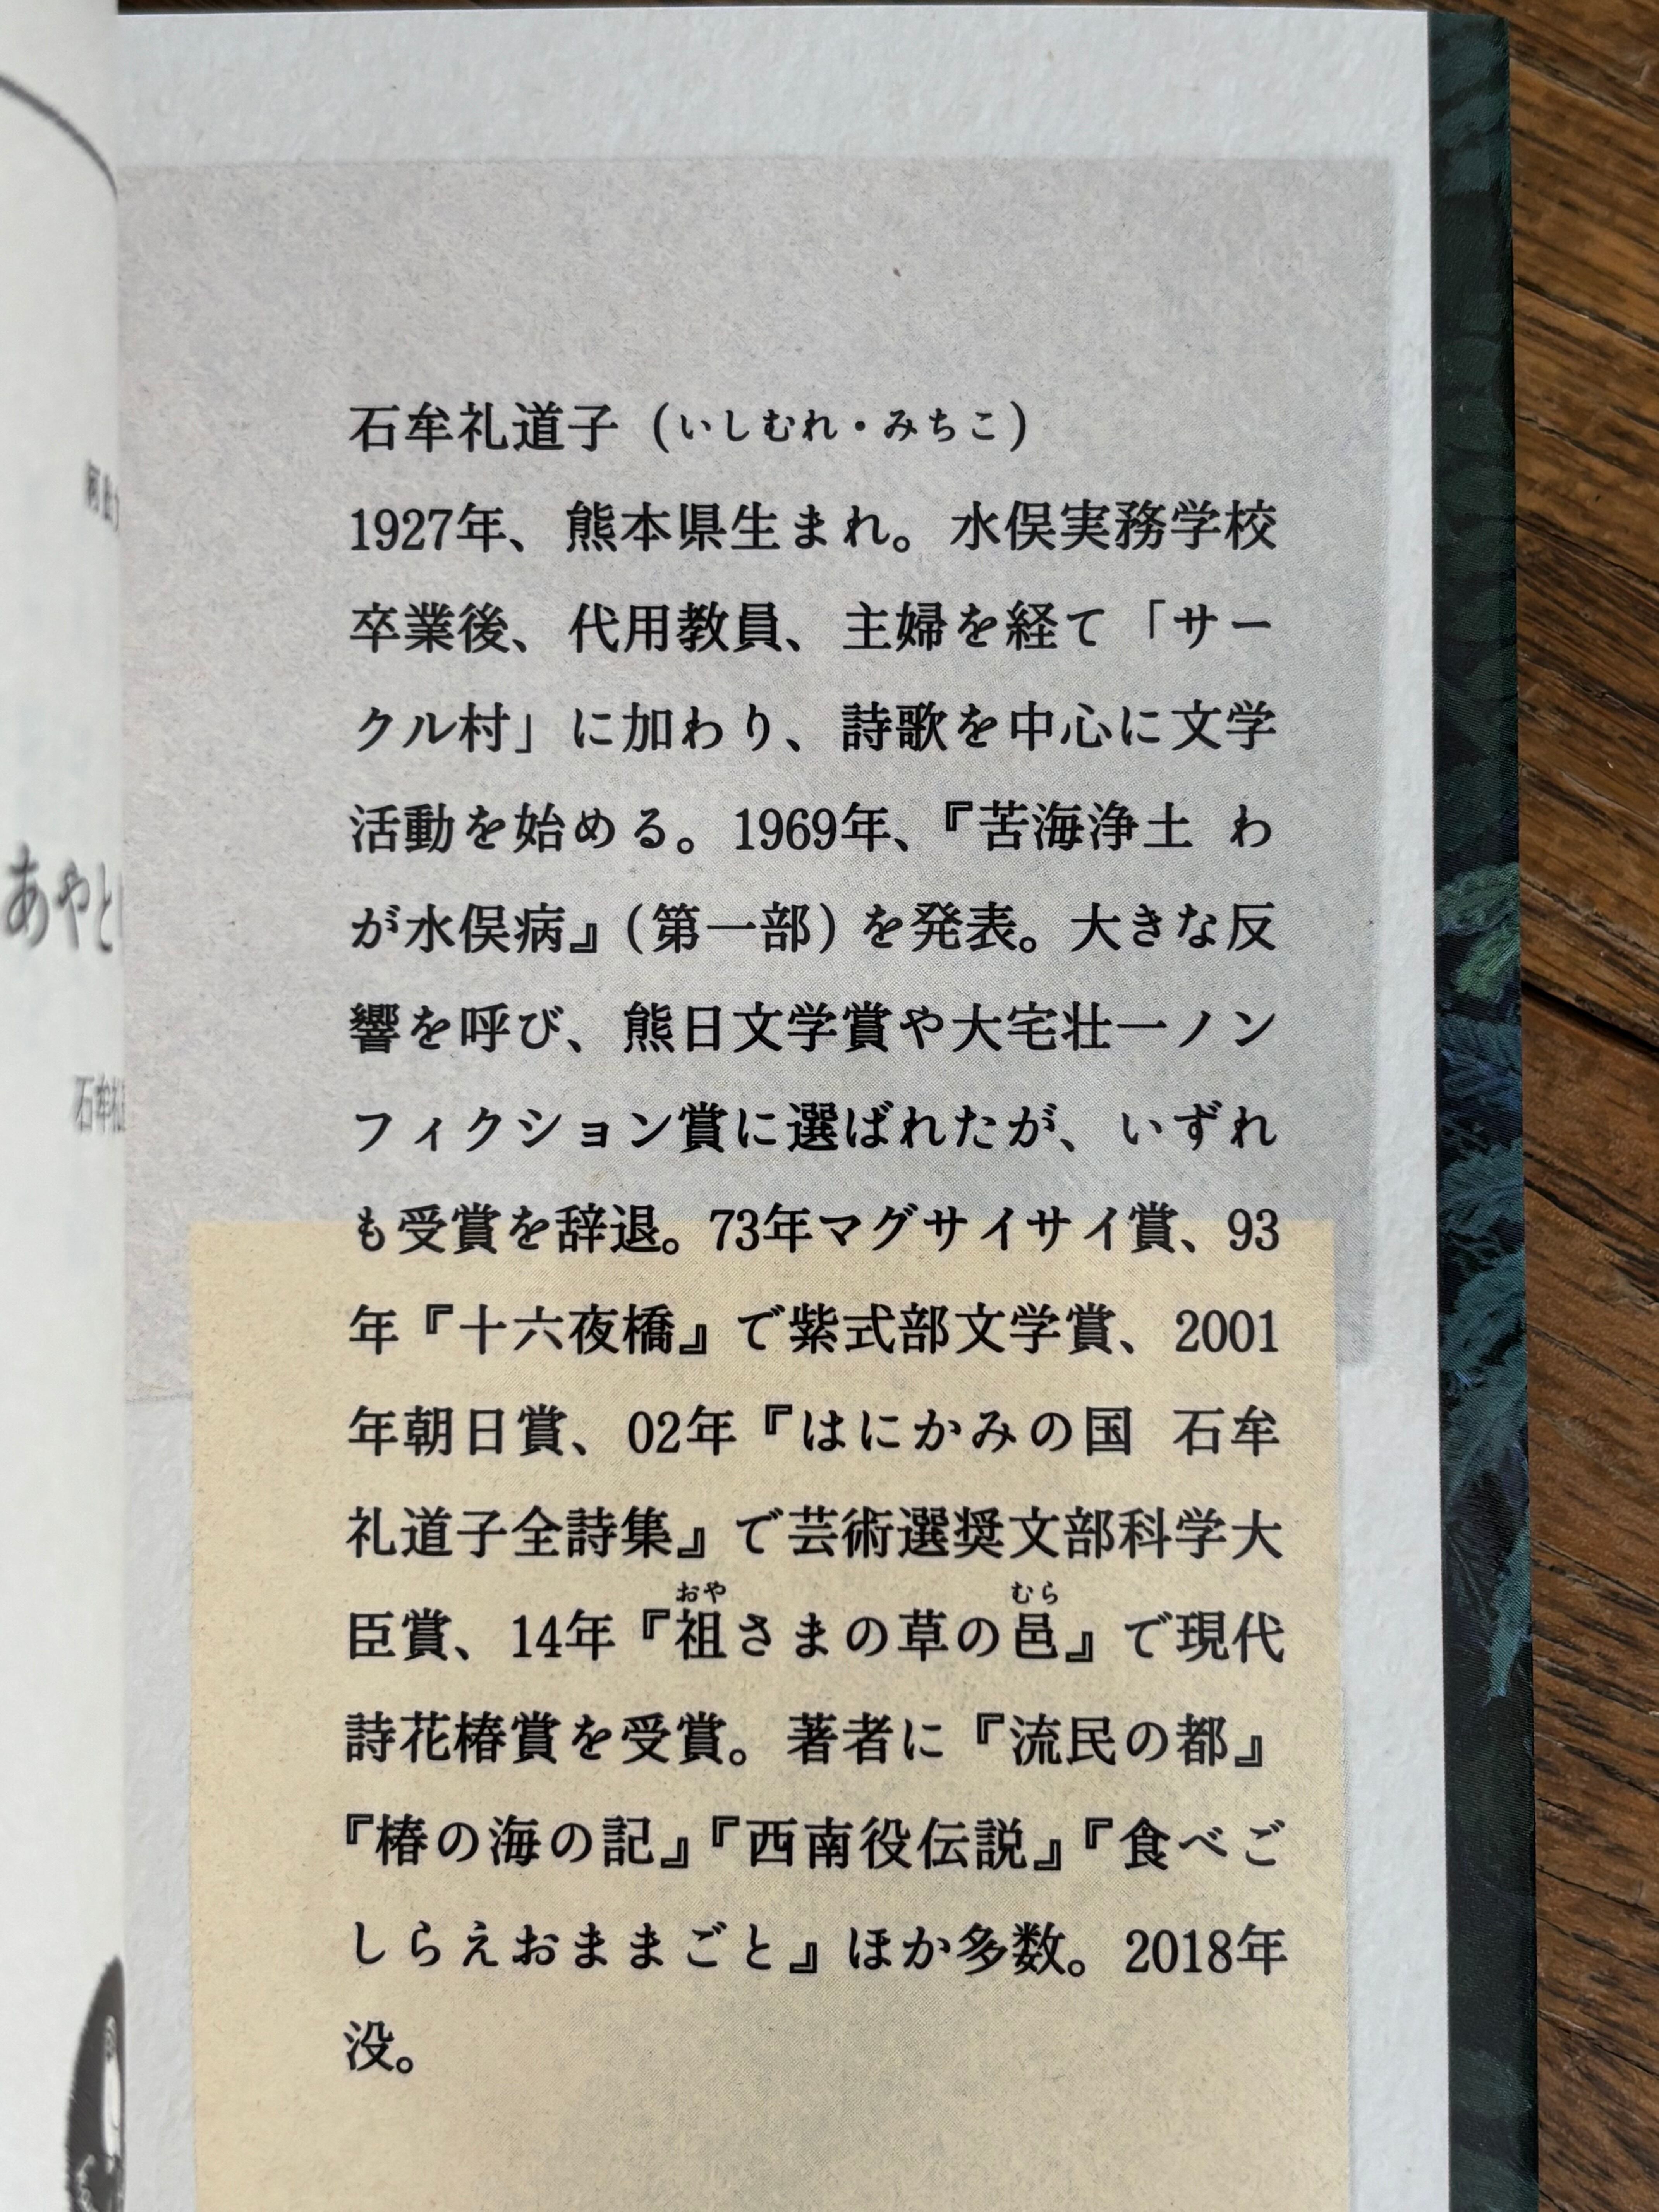 石牟礼道子（いしむれ・みちこ）
1927年、熊本県生まれ。水俣実務学校
卒業後、代用教員、主婦を経て「サー
クル村」に加わり、詩歌を中心に文学
活動を始める。1969年、『苦海浄土 わ
が水俣病』（第一部）を発表。大きな反
響を呼び、熊日文学賞や大宅壮一ノン
フィクション賞に選ばれたが、いずれ
も受賞を辞退。73年マグサイサイ賞、93
年『十六夜橋』で紫式部文学賞、2001
年朝日賞、02年『はにかみの国 石牟
礼道子全詩集』で芸術選奨文部科学大
おや むら
臣賞、14年『祖さまの草の邑』で現代
詩花椿賞を受賞。著者に『流民の都』
『椿の海の記』『西南役伝説』『食べご
しらえおままごと』ほか多数。2018年
没。
あやと
石牟